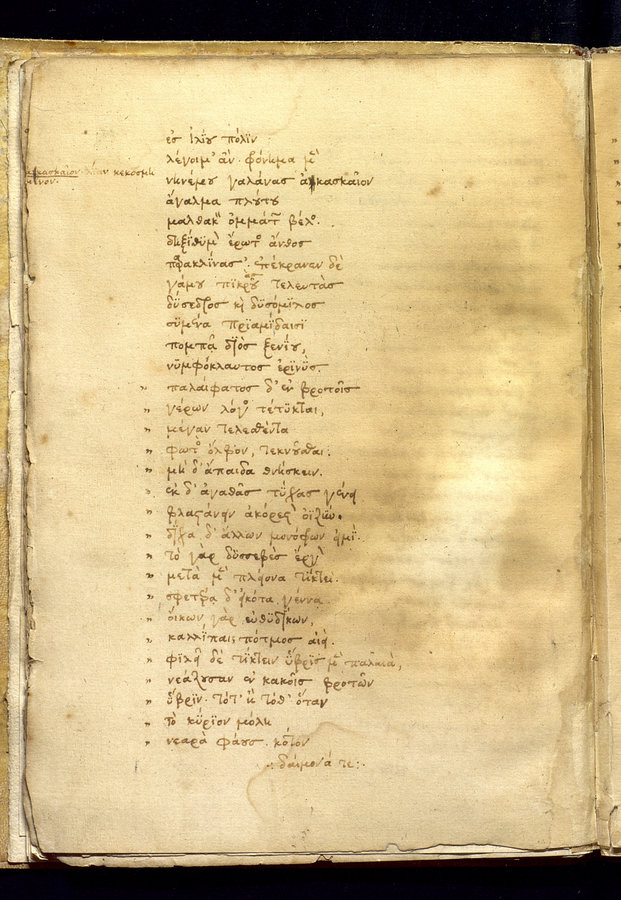 ἐς ἰλίȣ πόλϊν
λέγοιμ' ἂν φόνημα μ̀
νηνέμου γαλάνας ἀκασκαῖον
ἄγαλμα πλȣτȣ
μαλθακ' ὀμμάτ βέλο.
δηξίθϋμ ἔρωτο ἄνθος
παρακλίνασ'. ἐπέκρανεν δὲ
γάμȣ πϊκρȣ̀ τελευτὰσ
δύσεδρος κὶ δϋσόμϊλος
σϋμένα πρϊαμίδαισϊ
πομπᾷ δϊὸς ξενίȣ,
νϋμφόκλαυτος ἐρϊνῦς.
" παλαίφατος δ' ἐν βροτοῖς
" γέρων λόγο τέτϋκται,
" μέγαν τελεσθέντα
" φωτὸ ὄλβον, τεκνȣ͂σθαι.
" μὴ δ' ἄπαιδα θνήσκειν.
" ἐκ δ' ἀγαθᾶς τύχας γένει
" βλαςάνειν ἀκόρες ὀϊζύν.
" δίχα δ' ἄλλων μονόφρων εἰμί.
" τὸ γὰρ δϋσσεβὲς ἔργ
" μετὰ μ̀ πλείονα τίκτει.
" σφετέρα δ' εἰκότα γέννα
" οἴκων γὰρ εὐθϋδίκων,
" καλλίπαις πότμος αἰεί.
" φϊλεῖ δὲ τίκτειν ὕβρϊς μ̀ παλαιὰ,
" νεάζȣσαν ἐν κακοῖς βροτῶν
" ὕβρϊν. τότ' ἢ τόθ' ὅταν
" τὸ κύρϊον μόλῃ
" νεαρὰ φάȣς κότον
δαίμονά τε: